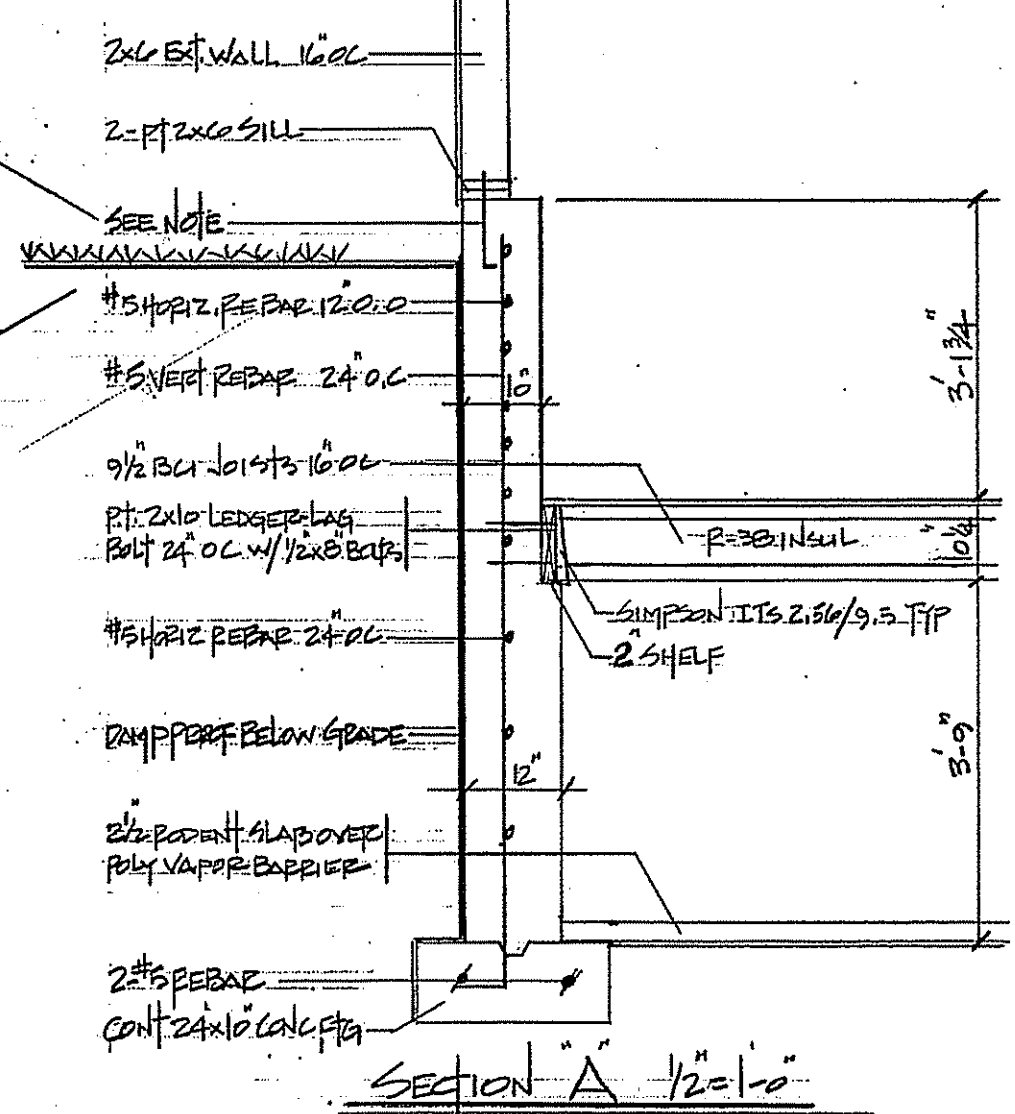 2x6 EXT. WALL 16" OC
2-PT 2x6 SILL
SEE NOTE
#5 HORIZ. REBAR 12" O.O
#5 VERT REBAR 24" O.C
10"
3'-1 3/4"
9 1/2" BCI JOISTS 16" OC
P.T. 2x10 LEDGER-LAG
BOLT 24" OC W/ 1/2"x8" BOLTS
R=38 INSUL
10 1/4"
SIMPSON ITS 2.56/9.5 TYP
2" SHELF
#5 HORIZ REBAR 24" OC
DAMPPERF BELOW GRADE
12"
3'-9"
2 1/2" RODENT SLAB OVER
POLY VAPOR BARRIER
2-#5 REBAR
CONT 24"x10" CONC FTG
SECTION "A" 1/2"=1'-0"